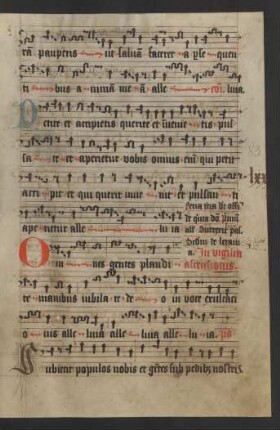 rā pauperis ut saluā faceret a pse quen
ti bus a nimā me ā alle v̄s luia
Petite et accipietis querite et inuenie tis pul
sa te et aperietur vobis omnis enī qui petit
acci pit et qui querit inue nit et pulsan ti
ape rietur alle lu ia
In vigilia
ascensionis
Om nes gentes plaudi
te manibus iubila te de o in voce exultaci
o nis alle luia alle luia alle lu ia ps̄
Subiecit populos nobis et gētes sub pedibꝫ nostris